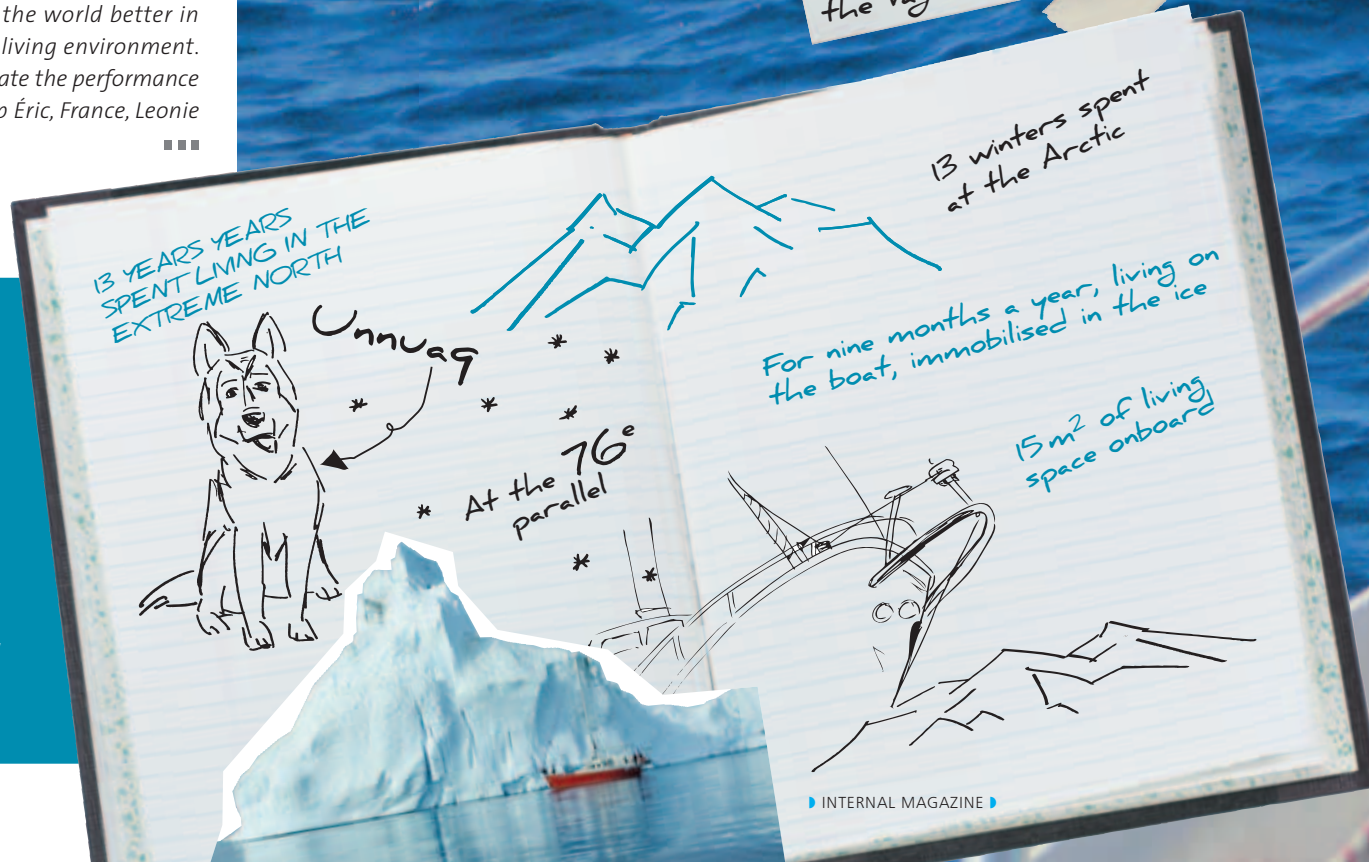 the world better in
living environment.
ate the performance
Éric, France, Leonie
the
13 YEARS YEARS
SPENT LIVING IN THE
EXTREME NORTH
Unnuaq
At the 76e
parallel
13 winters spent
at the Arctic
For nine months a year, living on
the boat, immobilised in the ice
15 m² of living
space onboard
INTERNAL MAGAZINE